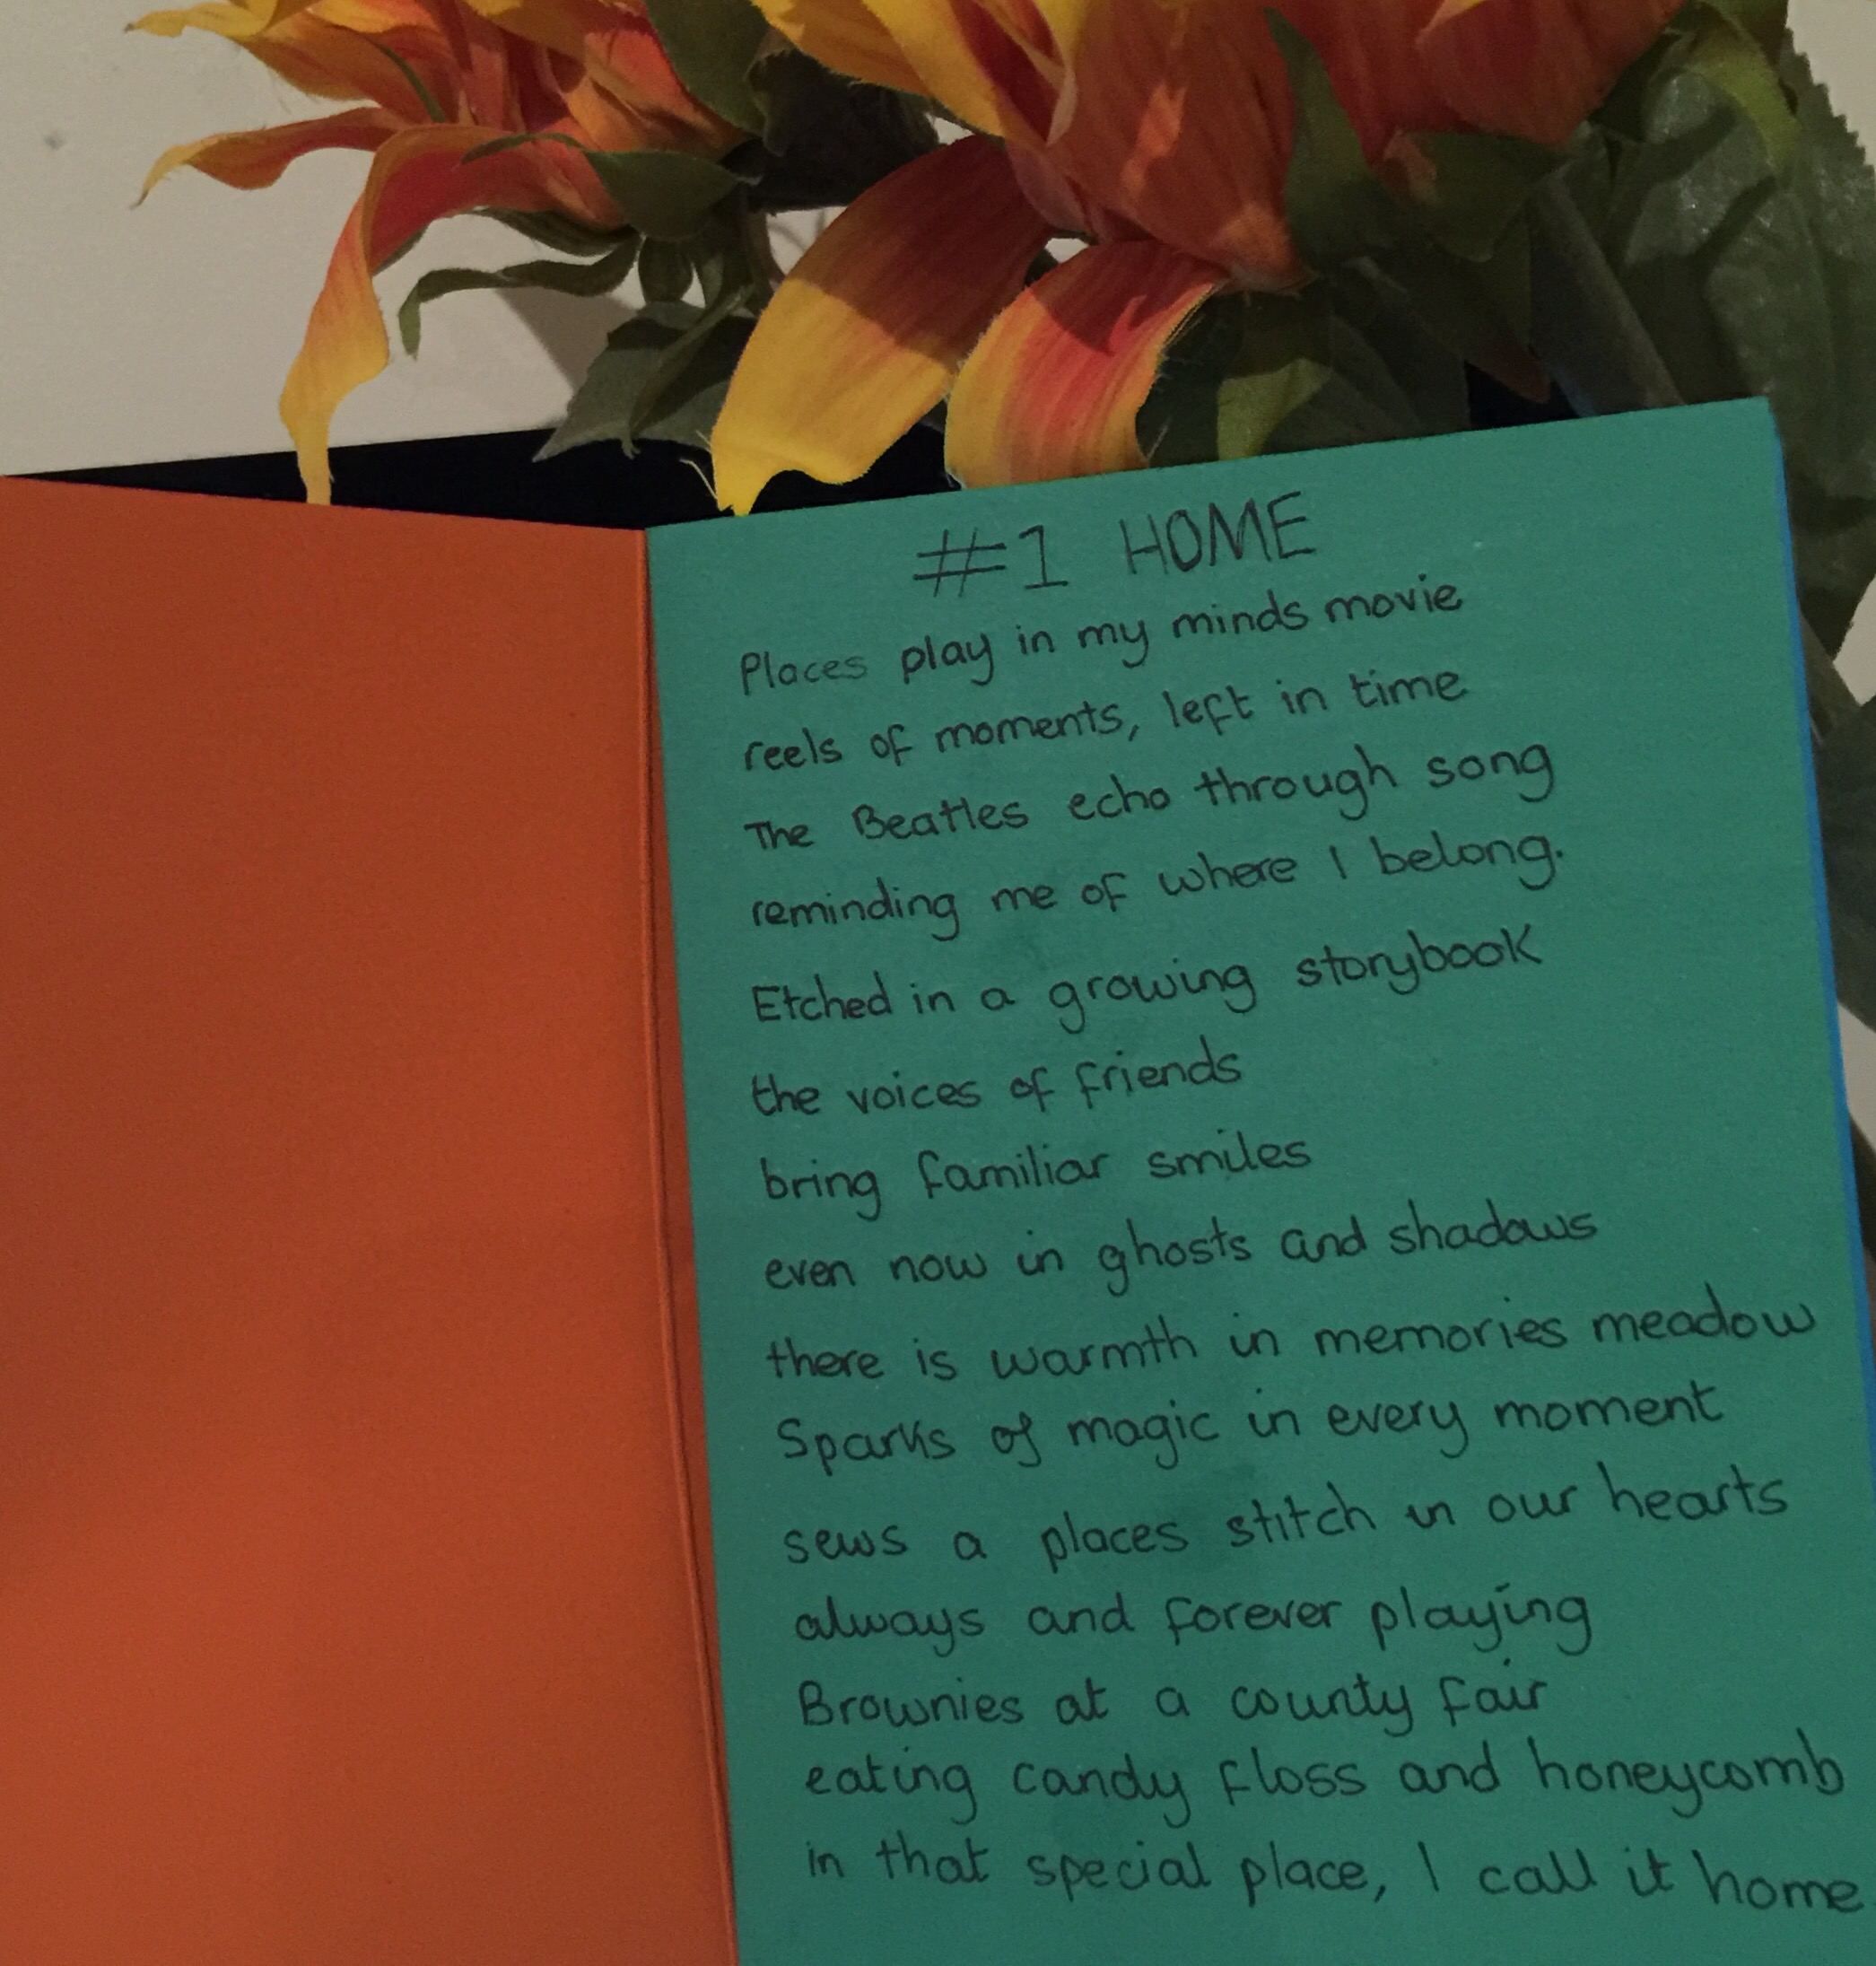 #1 HOME
Places play in my minds movie
reels of moments, left in time
The Beatles echo through song
reminding me of where I belong.
Etched in a growing storybook
the voices of friends
bring familiar smiles
even now in ghosts and shadows
there is warmth in memories meadow
Sparks of magic in every moment
sews a places stitch in our hearts
always and forever playing
Brownies at a county fair
eating candy floss and honeycomb
in that special place, I call it home